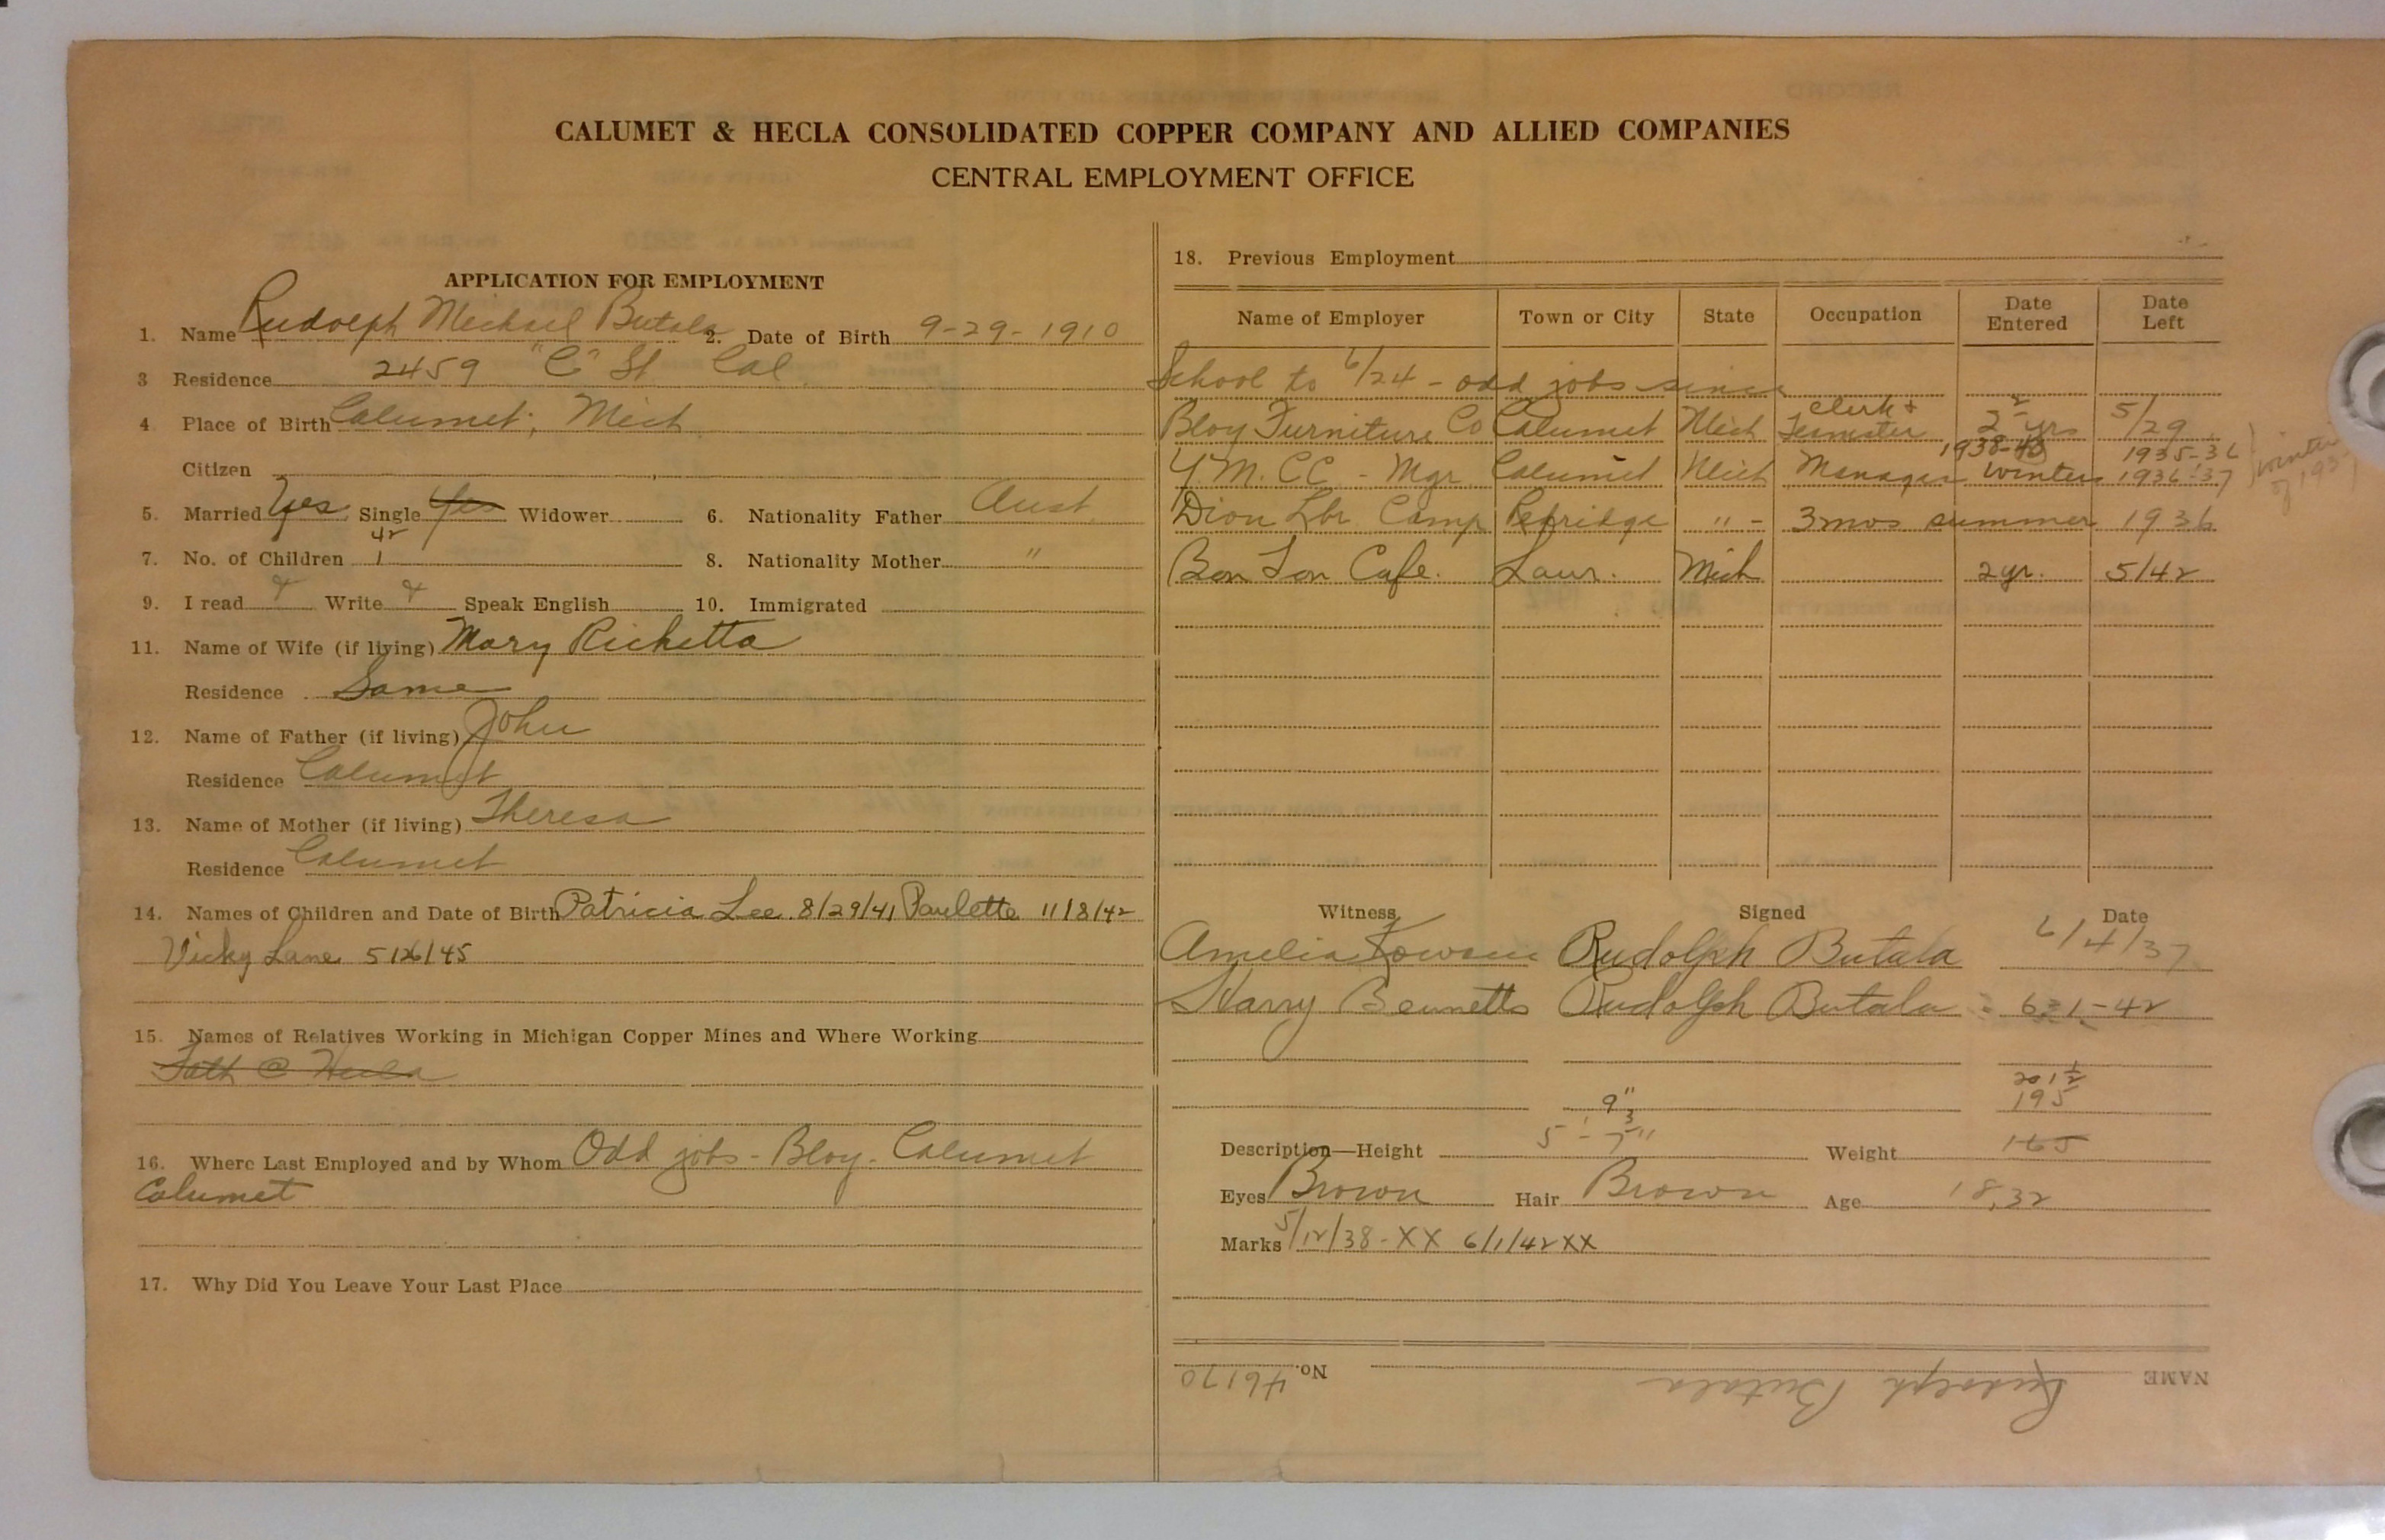 CALUMET & HECLA CONSOLIDATED COPPER COMPANY AND ALLIED COMPANIES
CENTRAL EMPLOYMENT OFFICE
APPLICATION FOR EMPLOYMENT
1. Name Rudolph Michael Butala 2. Date of Birth 9-29-1910
3 Residence 2459 "C" St Cal.
4 Place of Birth Calumet, Mich
Citizen
5. Married Yes Single Yes Widower 6. Nationality Father Aust.
42
7. No. of Children 1 8. Nationality Mother "
9. I read Write Speak English 10. Immigrated
11. Name of Wife (if living) Mary Richetta
Residence Same
12. Name of Father (if living) John
Residence Calumet
13. Name of Mother (if living) Theresa
Residence Calumet
14. Names of Children and Date of Birth Patricia Lee 8/29/41 Paulette 11/8/42
Vicky Lane
15. Names of Relatives Working in Michigan Copper Mines and Where Working
Fath @ Hecla
16. Where Last Employed and by Whom Odd jobs - Bloy - Calumet
Calumet
17. Why Did You Leave Your Last Place
18. Previous Employment
Name of Employer Town or City State Occupation Date Entered Date Left
School to 6/24 - odd jobs since
Bloy Furniture Co Calumet Mich clerk + 2 yrs 5/29
1938-40 1935-36
Y.M.CC - Mgr Calumet Mich Manager winters 1936-37 winter of 1937
Dion Lbr Camp " - 3 mos summer 1936
Bon Ton Cafe. Laur. Mich 2 yr. 5/42
Witness Signed Date
Amelia Rudolph Butala 6/4/37
Harry Bennetts Rudolph Butala 6-1-42
201 1/2
9" 195
Description—Height 5'-7" Weight 165
Eyes Brown Hair Brown Age 18, 32
Marks 5/12/38-XX 6/1/42 XX
NAME Rudolph Butala No. 46170